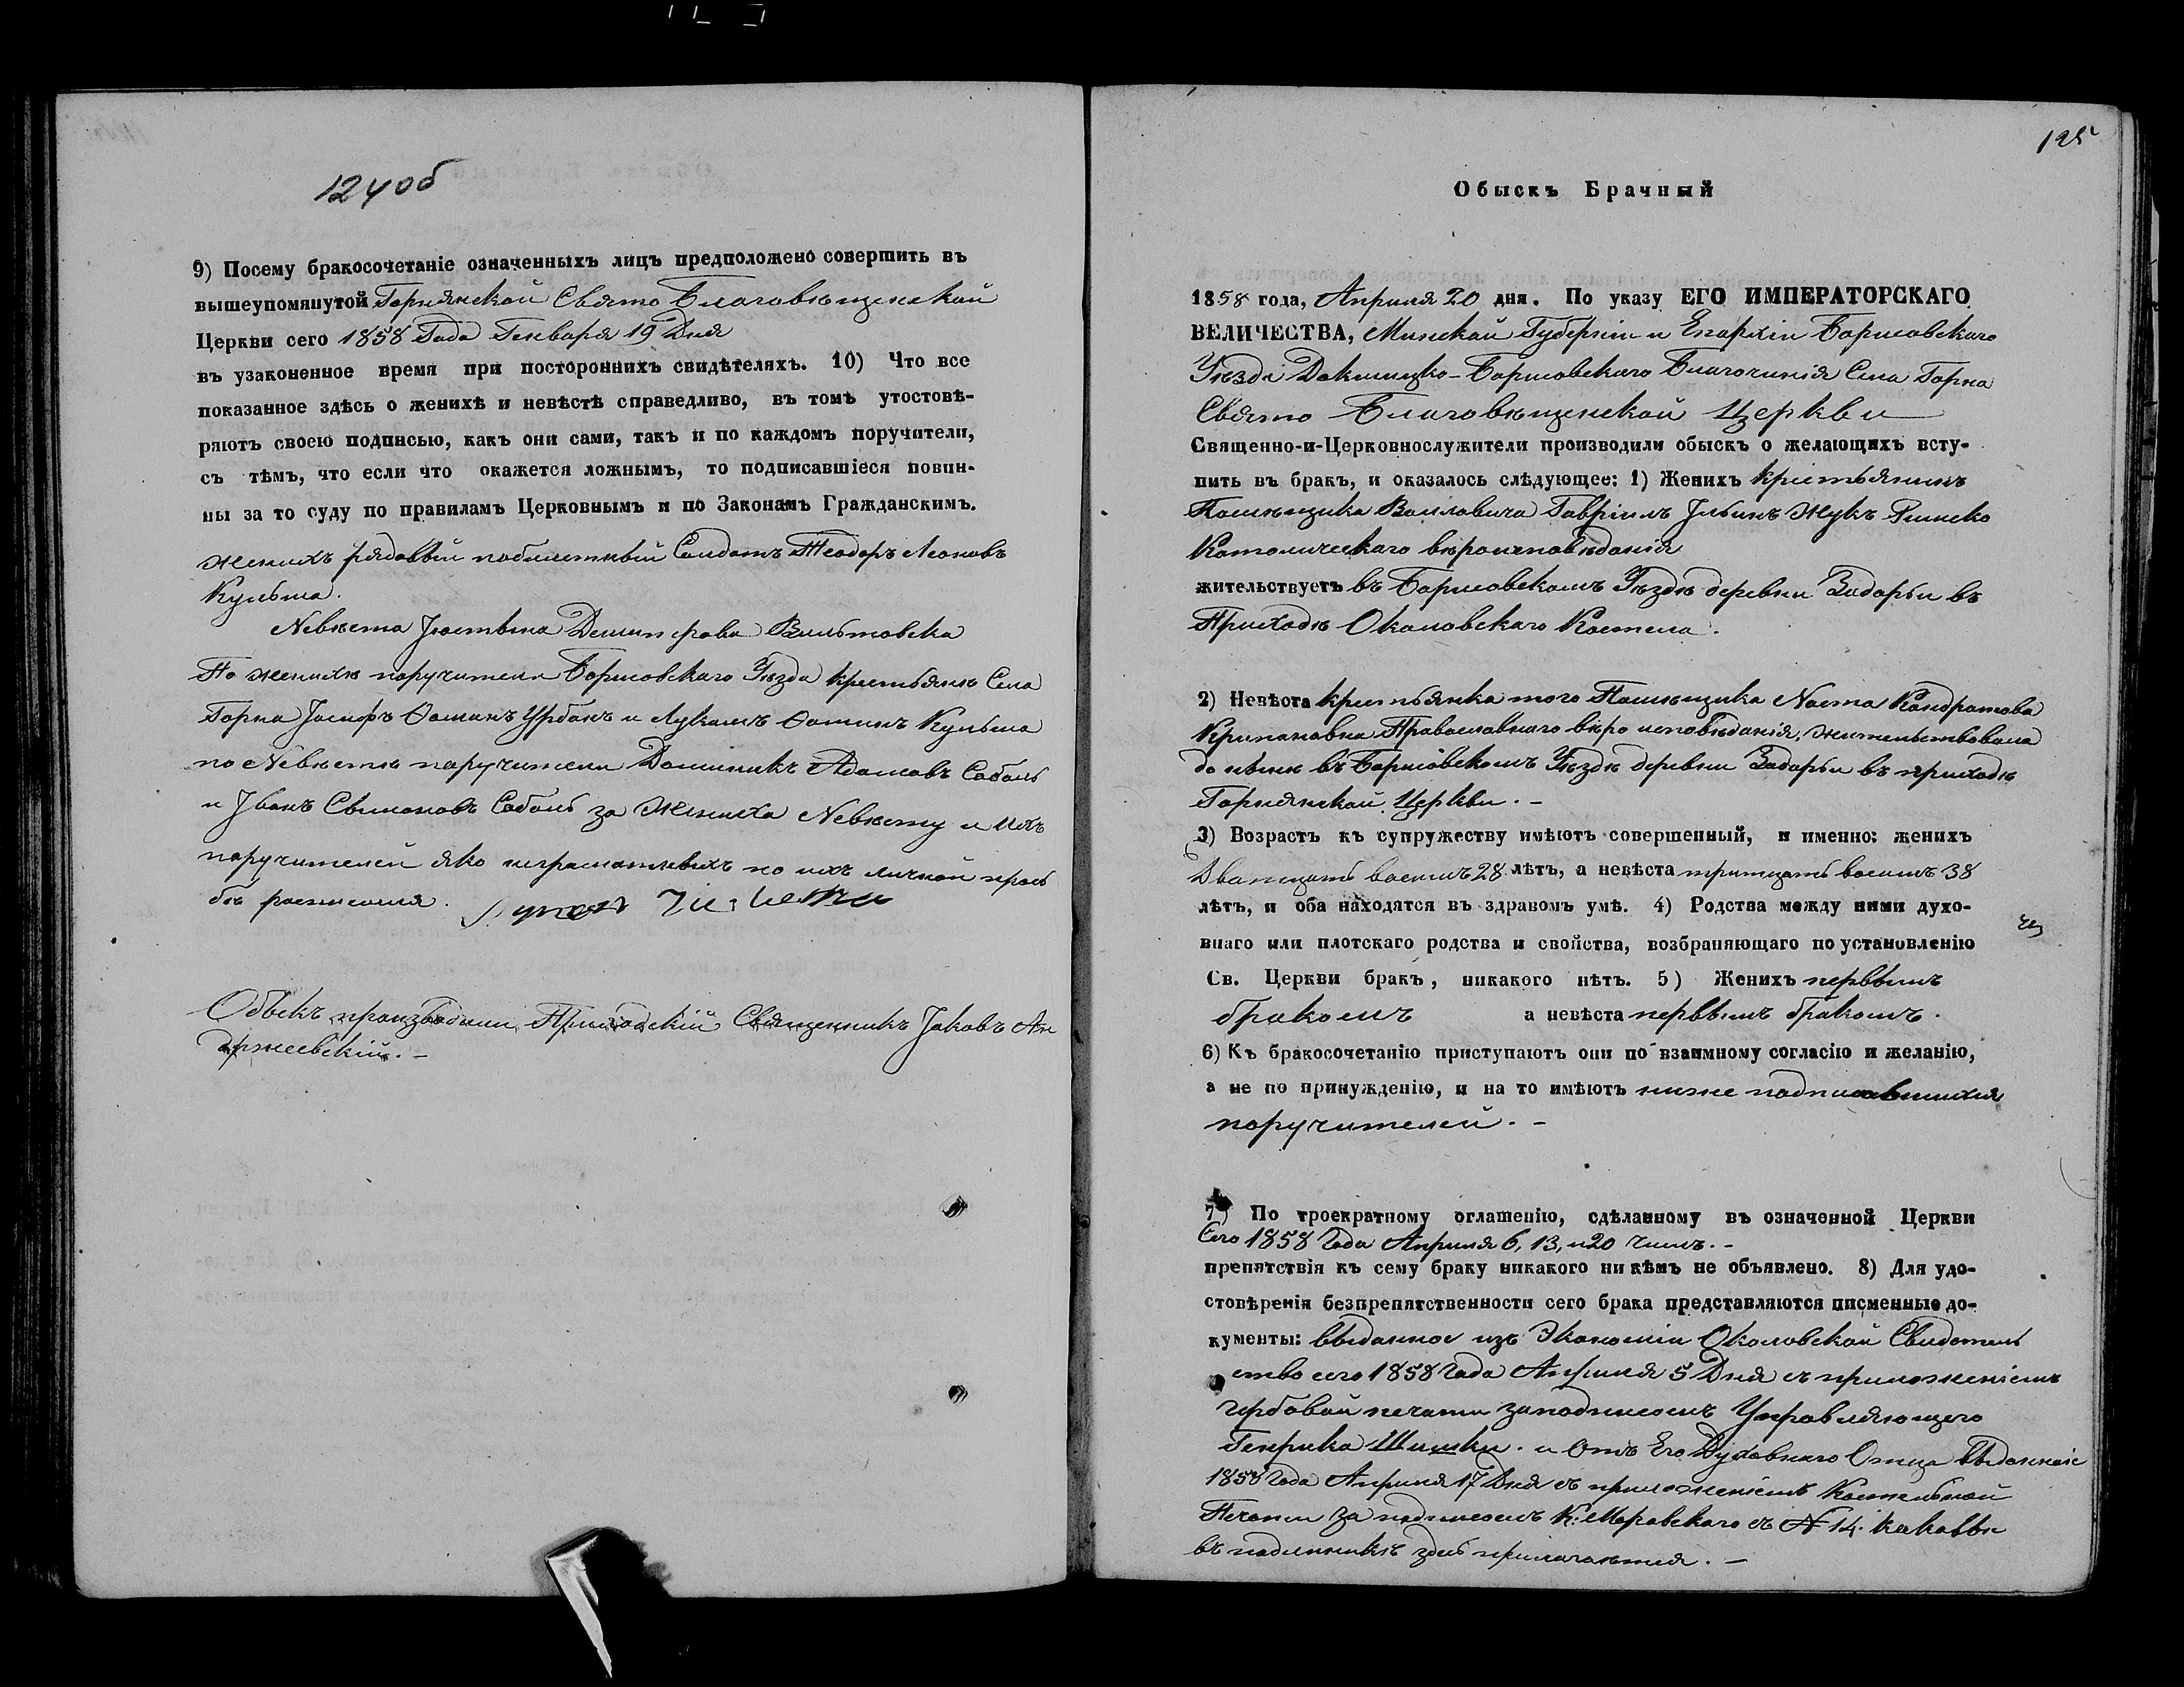 124 об
9) Посему бракосочетаніе означенныхъ лицъ предположено совершить въ
вышеупомянутой Горнянской Свято Благовѣщенской
Церкви сего 1858 Года Генваря 19 Дня
въ узаконенное время при постороннихъ свидѣтеляхъ. 10) Что все
показанное здѣсь о женихѣ и невѣстѣ справедливо, въ томъ утостовѣ-
ряютъ своею подписью, какъ они сами, такъ и по каждомъ поручители,
съ тѣмъ, что если что окажется ложнымъ, то подписавшіеся повин-
ны за то суду по правиламъ Церковнымъ и по Законамъ Гражданскимъ.
женихъ рядовый побилетный Солдатъ Теодоръ Леоновъ
Кульма.
Невѣста Jюстына Демитрова
По женихѣ поручители Борисовскаго Уѣзда крестьяне Села
Горна Jосифъ Ѳоминъ Урбанъ и Ѳоминъ Кульма
по Невѣстѣ поручители Доминикъ Адамовъ Соболь
и Jванъ Соболь за Жениха Невѣсту и ихъ
поручителей яко неграмотныхъ по ихъ личной прозь
бѣ росписался.
Обыскъ производили Приходскій Священникъ Jаковъ Ан
држеевскій. –
125
Обыскъ Брачный
1858 года, Апрѣля 20 дня. По указу ЕГО ИМПЕРАТОРСКАГО
ВЕЛИЧЕСТВА, Минской Губерніи и Епархіи Борисовскаго
Уѣзда Докшицко-Борисовскаго Благочинія Села Горна
Свято Благовѣщенской Церкви
Священно-и-Церковнослужители производили обыскъ о желающихъ всту-
пить въ бракъ, и оказалось слѣдующее: 1) Женихъ крестьянинъ
Помѣщика Гавріилъ Jльинъ Жукъ Римско
Католическаго вѣроисповѣданія
жительствуетъ въ Борисовскомъ Уѣздѣ деревни Задорьи въ
Приходѣ Околовскаго Костела.
2) Невѣста крестьянка того Помѣщика Наста Кондратова
Православнаго вѣро исповѣданія, жительствовала
до нынѣ въ Борисовскомъ Уѣздѣ деревни Задорьи въ приходѣ
Горнянской Церкви. –
3) Возрастъ къ супружеству имѣютъ совершенный, и именно: женихъ
Дватцать восимъ 28 лѣтъ, а невѣста тритцать восимъ 38
лѣтъ, и оба находятся въ здравомъ умѣ. 4) Родства между ними духо-
внаго или плотскаго родства и свойства, возбраняющаго по установленію
Св. Церкви бракъ, никакого нѣтъ. 5) Женихъ первымъ
бракомъ а невѣста первымъ бракомъ.
6) Къ бракосочетанію приступаютъ они по взаимному согласію и желанію,
а не по принужденію, и на то имѣютъ ниже подписавшихся
поручителей. –
7) По троекратному оглашенію, сдѣланному въ означенной Церкви
Сего 1858 Года Апрѣля 6, 13, и 20 числъ. –
препятствія къ сему браку никакого никѣмъ не объявлено. 8) Для удо-
стовѣренія безпрепятственности сего брака представляются писменные до-
кументы: выданное изъ Экономіи Околовской Свидѣтель
ство сего 1858 Года Апрѣля 5 Дня съ приложеніемъ
гербовой печати заподписомъ Управляющего
Генрика Шишки. и Отъ Его Духовнаго Отца выданное
1858 Года Апрѣля 17 Дня съ приложеніемъ Костельной
Печати за подписомъ К: Маровскаго съ № 14. каковы
въ подлинникѣ здесь прилагаются. –